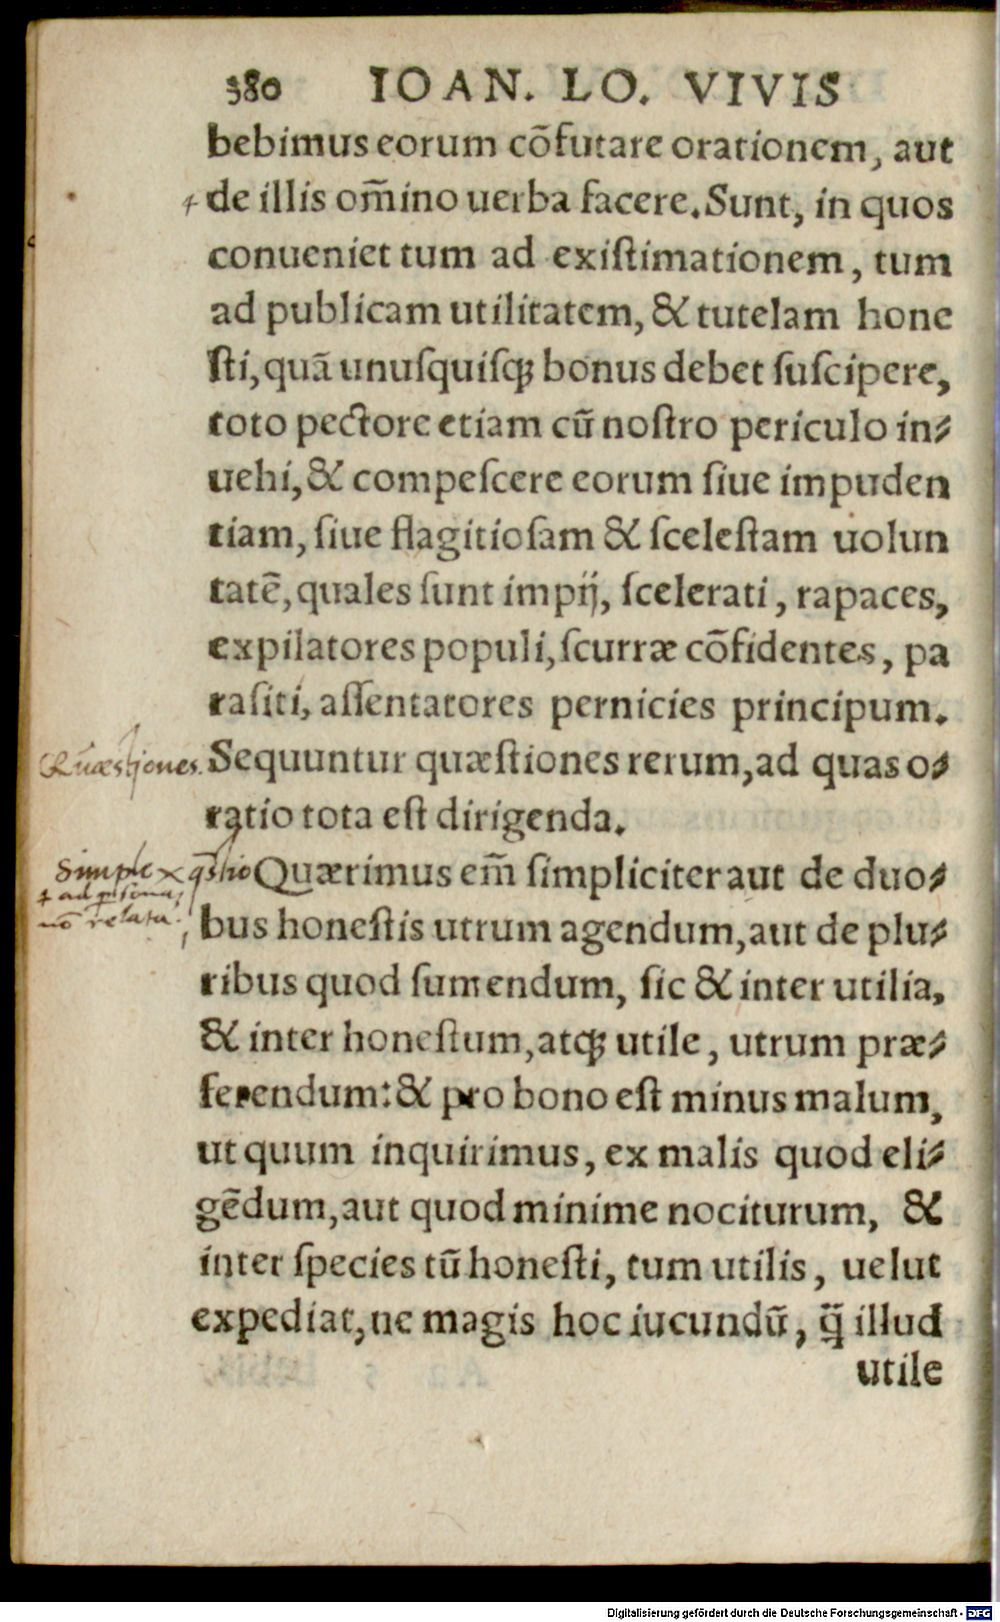 380 IOAN. LO. VIVIS
bebimus eorum cõfutare orationem, aut
de illis om̃ino uerba facere. Sunt, in quos
conueniet tum ad exiſtimationem, tum
ad publicam utilitatem, & tutelam hone
ſti, quã unuſquiſq; bonus debet ſuſcipere,
toto pectore etiam cũ noſtro periculo in⸗
uehi, & compeſcere eorum ſiue impuden
tiam, ſiue flagitioſam & ſceleſtam uolun
tatẽ, quales ſunt impij, ſcelerati, rapaces,
expilatores populi, ſcurræ cõfidentes, pa
raſiti, aſſentatores pernicies principum.
Quæstiones.
Sequuntur quæſtiones rerum, ad quas o⸗
ratio tota eſt dirigenda.
Simplex
Quærimus em̃ ſimpliciter aut de duo⸗
nõ relata.
bus honeſtis utrum agendum, aut de plu⸗
ribus quod ſumendum, ſic & inter utilia,
& inter honeſtum, atq; utile, utrum præ⸗
ferendum: & pro bono eſt minus malum,
ut quum inquirimus, ex malis quod eli⸗
gẽdum, aut quod minime nociturum, &
inter ſpecies tũ honeſti, tum utilis, uelut
expediat, ne magis hoc iucundũ, q̃ illud
utile
Digitalisierung gefördert durch die Deutsche Forschungsgemeinschaft - DFG